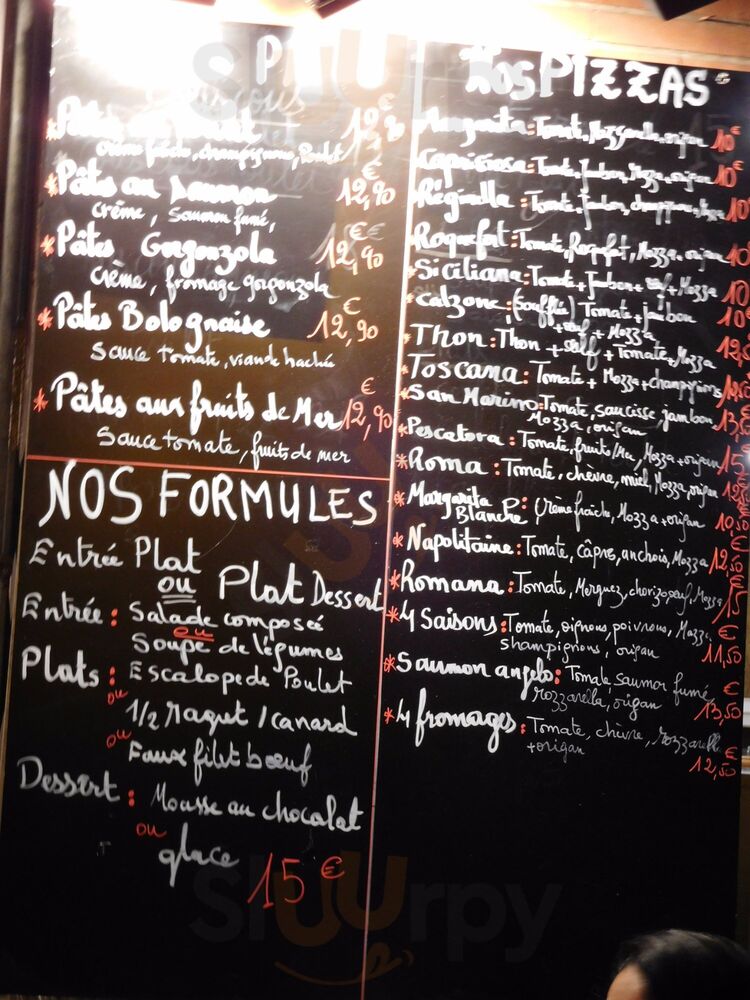 Pâtes
12,90 €
Crème fraîche, champignons, Poulet
* Pâtes au Saumon
12,90 €
Crème, Saumon fumé,
* Pâtes Gorgonzola
12,90 €
Crème, fromage gorgonzola
* Pâtes Bolognaise
12,90 €
Sauce tomate, viande haché
* Pâtes aux fruits de Mer
12,90 €
Sauce tomate, fruits de mer
NOS FORMULES
Entrée Plat
ou Plat Dessert
Entrée : Salade composé
ou
Soupe de légumes
Plats : Escalope de Poulet
ou
1/2 Magret / canard
ou
Faux filet bœuf
Dessert : Mousse au chocolat
ou
glace
15 €
Nos PIZZAS
Margarita : Tomate, Mozzarella, origan 10 €
Capriciosa : Tomate, Jambon, Mozza, origan 10 €
Réginella : Tomate, Jambon, champignon, Mozza 10
Roquefort : Tomate, Roquefort, Mozza, origan 10
* Siciliana : Tomate + Jambon + œuf + Mozza 10
* Calzone : (Soufflé) Tomate + jambon 10 €
+ œuf + Mozza
* Thon : Thon + œuf + Tomate + Mozza
* Toscana : Tomate + Mozza + champignons
* San Marino : Tomate, saucisse, jambon
Mozza, origan
* Pescatora : Tomate, fruits/Mer, Mozza + origan
* Roma : Tomate, chèvre, miel, Mozza, origan
* Margarita Blanche : Crème fraîche, Mozza + origan 10,50
* Napolitaine : Tomate, câpres, anchois, Mozza 12,50 €
* Romana : Tomate, Merguez, chorizo, œuf, Mozza 15
* 4 Saisons : Tomate, oignons, poivrons, Mozza
shampignons, origan 11,50 €
* Saumon angelo : Tomate, saumon fumé
mozzarella, origan 13,50 €
* 4 fromages : Tomate, chèvre, mozzarell
+ origan 12,50 €
Sluurpy